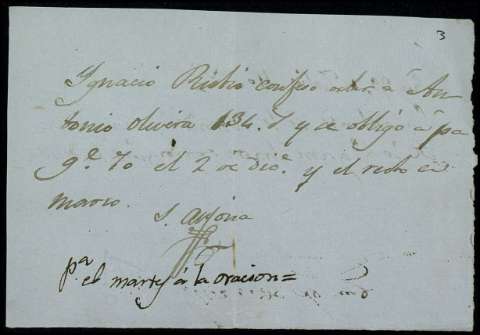 3
Ygnacio Rubio confeso deber á An-
tonio Olivera 134. $ y se obligó á pa
g.r 70 el 2 de Dic.e y el resto en
marzo.
S. Alfona
pa el martes á la oracion=